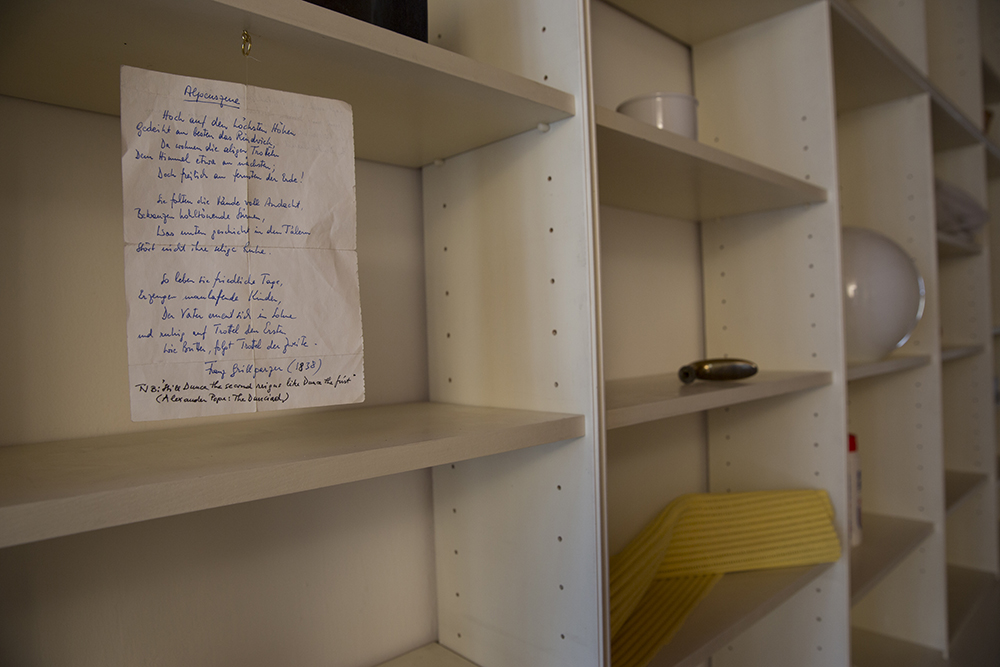 Alpenszene
Hoch auf den höchsten Höhen
Gedeiht am besten das Rindvieh,
Da wohnen die seligen Trotteln
Dem Himmel etwa am nächsten,
Doch freilich am fernsten der Erde!
Sie falten die Hände voll Andacht,
wohltönende
Was unten geschieht in den Tälern
Stört nicht ihre selige Ruhe.
So leben sie friedliche Tage,
Erzeugen maulaffende Kinder,
Der Vater erneut sich im Sohne
und ruhig auf Trottel den Ersten
Wie Briten, folgt Trottel der Zweite.
Franz Grillparzer (1838)
NB: "Still Dunce the second reigns like Dunce the first"
(Alexander Pope: The Dunciad)